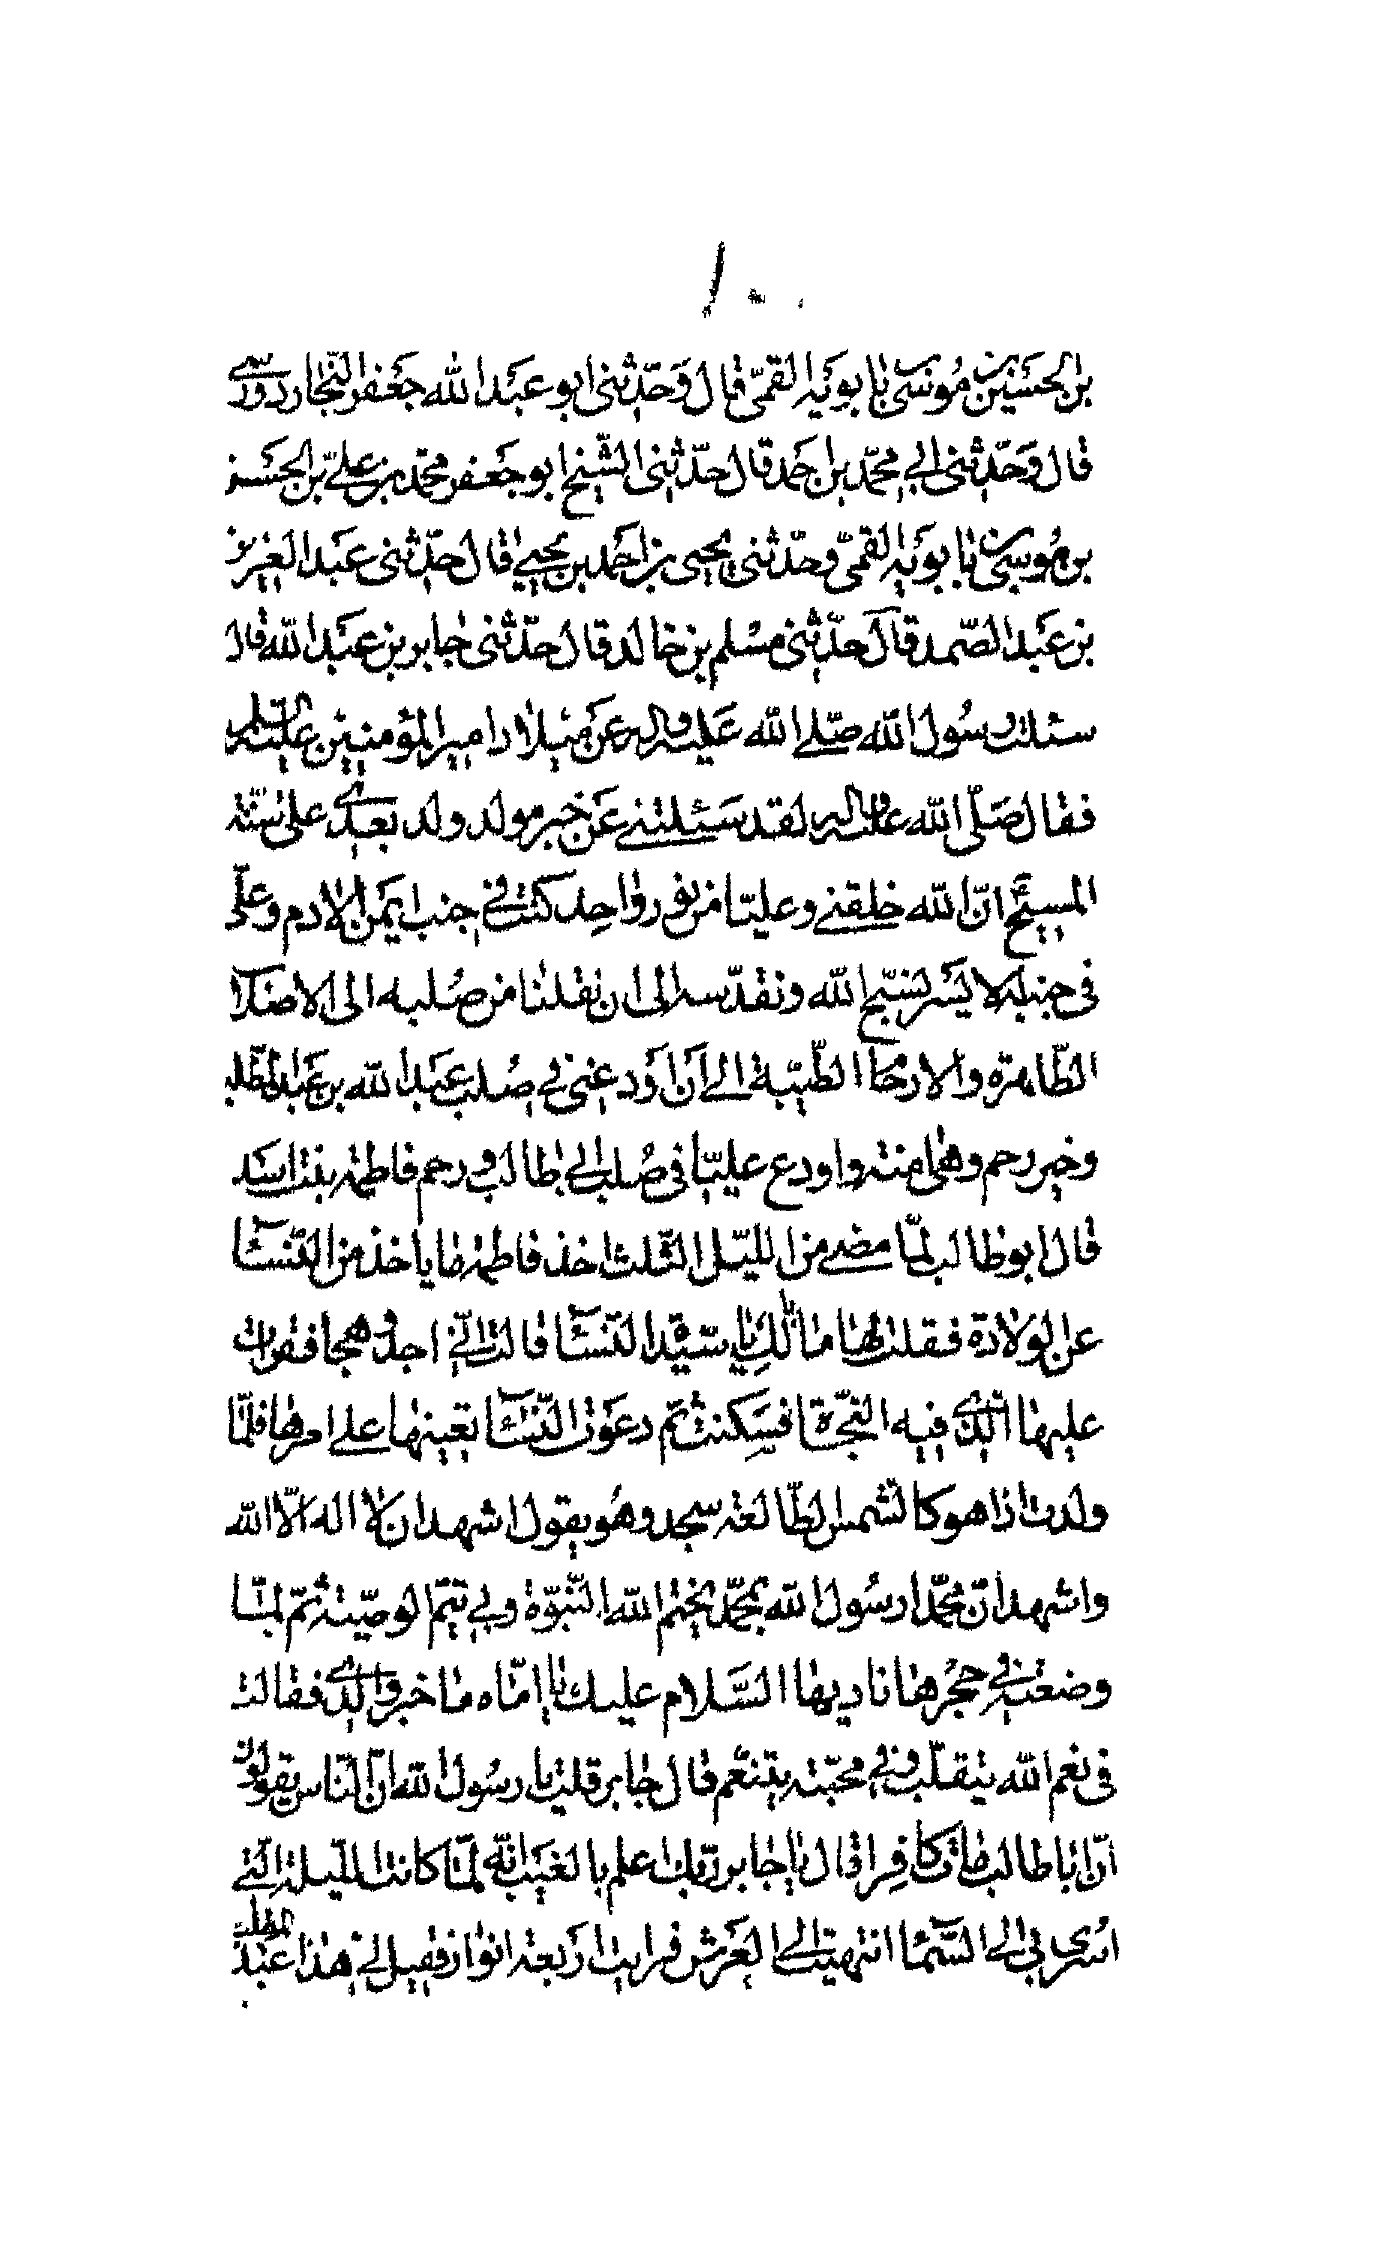 ١٠
بن الحسين بن موسى بابويه القمّى قال وَحدّثنى ابو عبَد الله جَعفر النجار دورَيستى
قال وَحَدّثنى ابى محمّد بن احمَد قال حدّثنى الشّيخ ابو جَعفر محمّد بن علىّ بن الحسَين
بن مُوسى بابوَيه القمىّ وحدّثنى يحيى بن احَمد بن يحيى قال حدّثنى عبَد العزيز
بن عَبد الصّمد قال حدّثنى مسْلم بن خالد قال حدّثنى جابر بن عبَد الله قال
سئلت رسُول الله صلّى الله عَليه واله عَن ميلاد امير المؤمنيَن عليه السلم
فقال صَلّى الله عليه واله لقد سَئلتنى عَن خبر مولد ولد بعدى على سنّة
المسيحَ انّ الله خلقنى وعليّا من نور واحِد كنت فى جنب ايمَن الادم وعلّى
فى جنبه الايسَر نسَبّح الله ونقدّسه الى ان نقلنا من صُلبه الى الاصلاَ
الطّاهرة والارحاَ الطّيّبة الى اَن اَودعنى فى صُلب عبَد الله بن عَبد المطّلب
وخير رحم وهى امنة واودع عليّا فى صُلب ابى طالب وفى رحم فاطمة بنت اسَد
قال ابو طالب لمّا مضى من الليّل الثّلث اخذ فاطمة ما ياخذ من النّسآ
عن الولادة فقلت لها مالَكِ يا سيّدة النّسآ قالت انّى اجد وهجا فقرات
عليها الّذى فيه النّجاة فسَكنت ثمّ دعَوت النّسآ بعينها على امرها فلمّا
ولدت اذا هو كالشّمس الطّالعة سجد وهُو يقول اشهد ان لا اله الّا الله
واشهد انّ محمّدا رسُول الله بمحمّد يختم الله النّبوّة وبى تتمّ الوصيّة ثمّ لمّا
وضعته فى حجْرها ناديها السَّلام عليك يا امّاه ما خبر والدى فقالت
فى نعم الله يتقلّب وفى محبّته يتنعّم قال جابر قلت يا رسُول الله انّ النّاس يقولون
انّ ابا طالب مات كافِرا قال يا جابر ربّك اعلم بالغيَب انّه لمّا كانت الليّلة الّتى
اسُرى بى الى السّمآ انتهيت الى العَرش فرايت اربعة انوار فقيل لى هذا عبد المطّلب